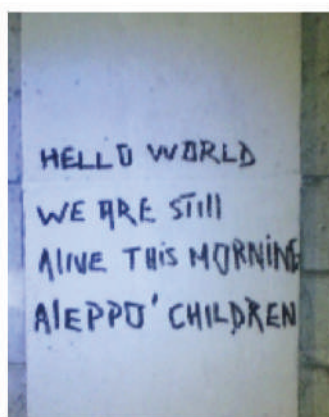 HELLO WORLD
WE ARE STIll
AlIVE THiS MORNiNG
AlEPPO' CHiLDREN